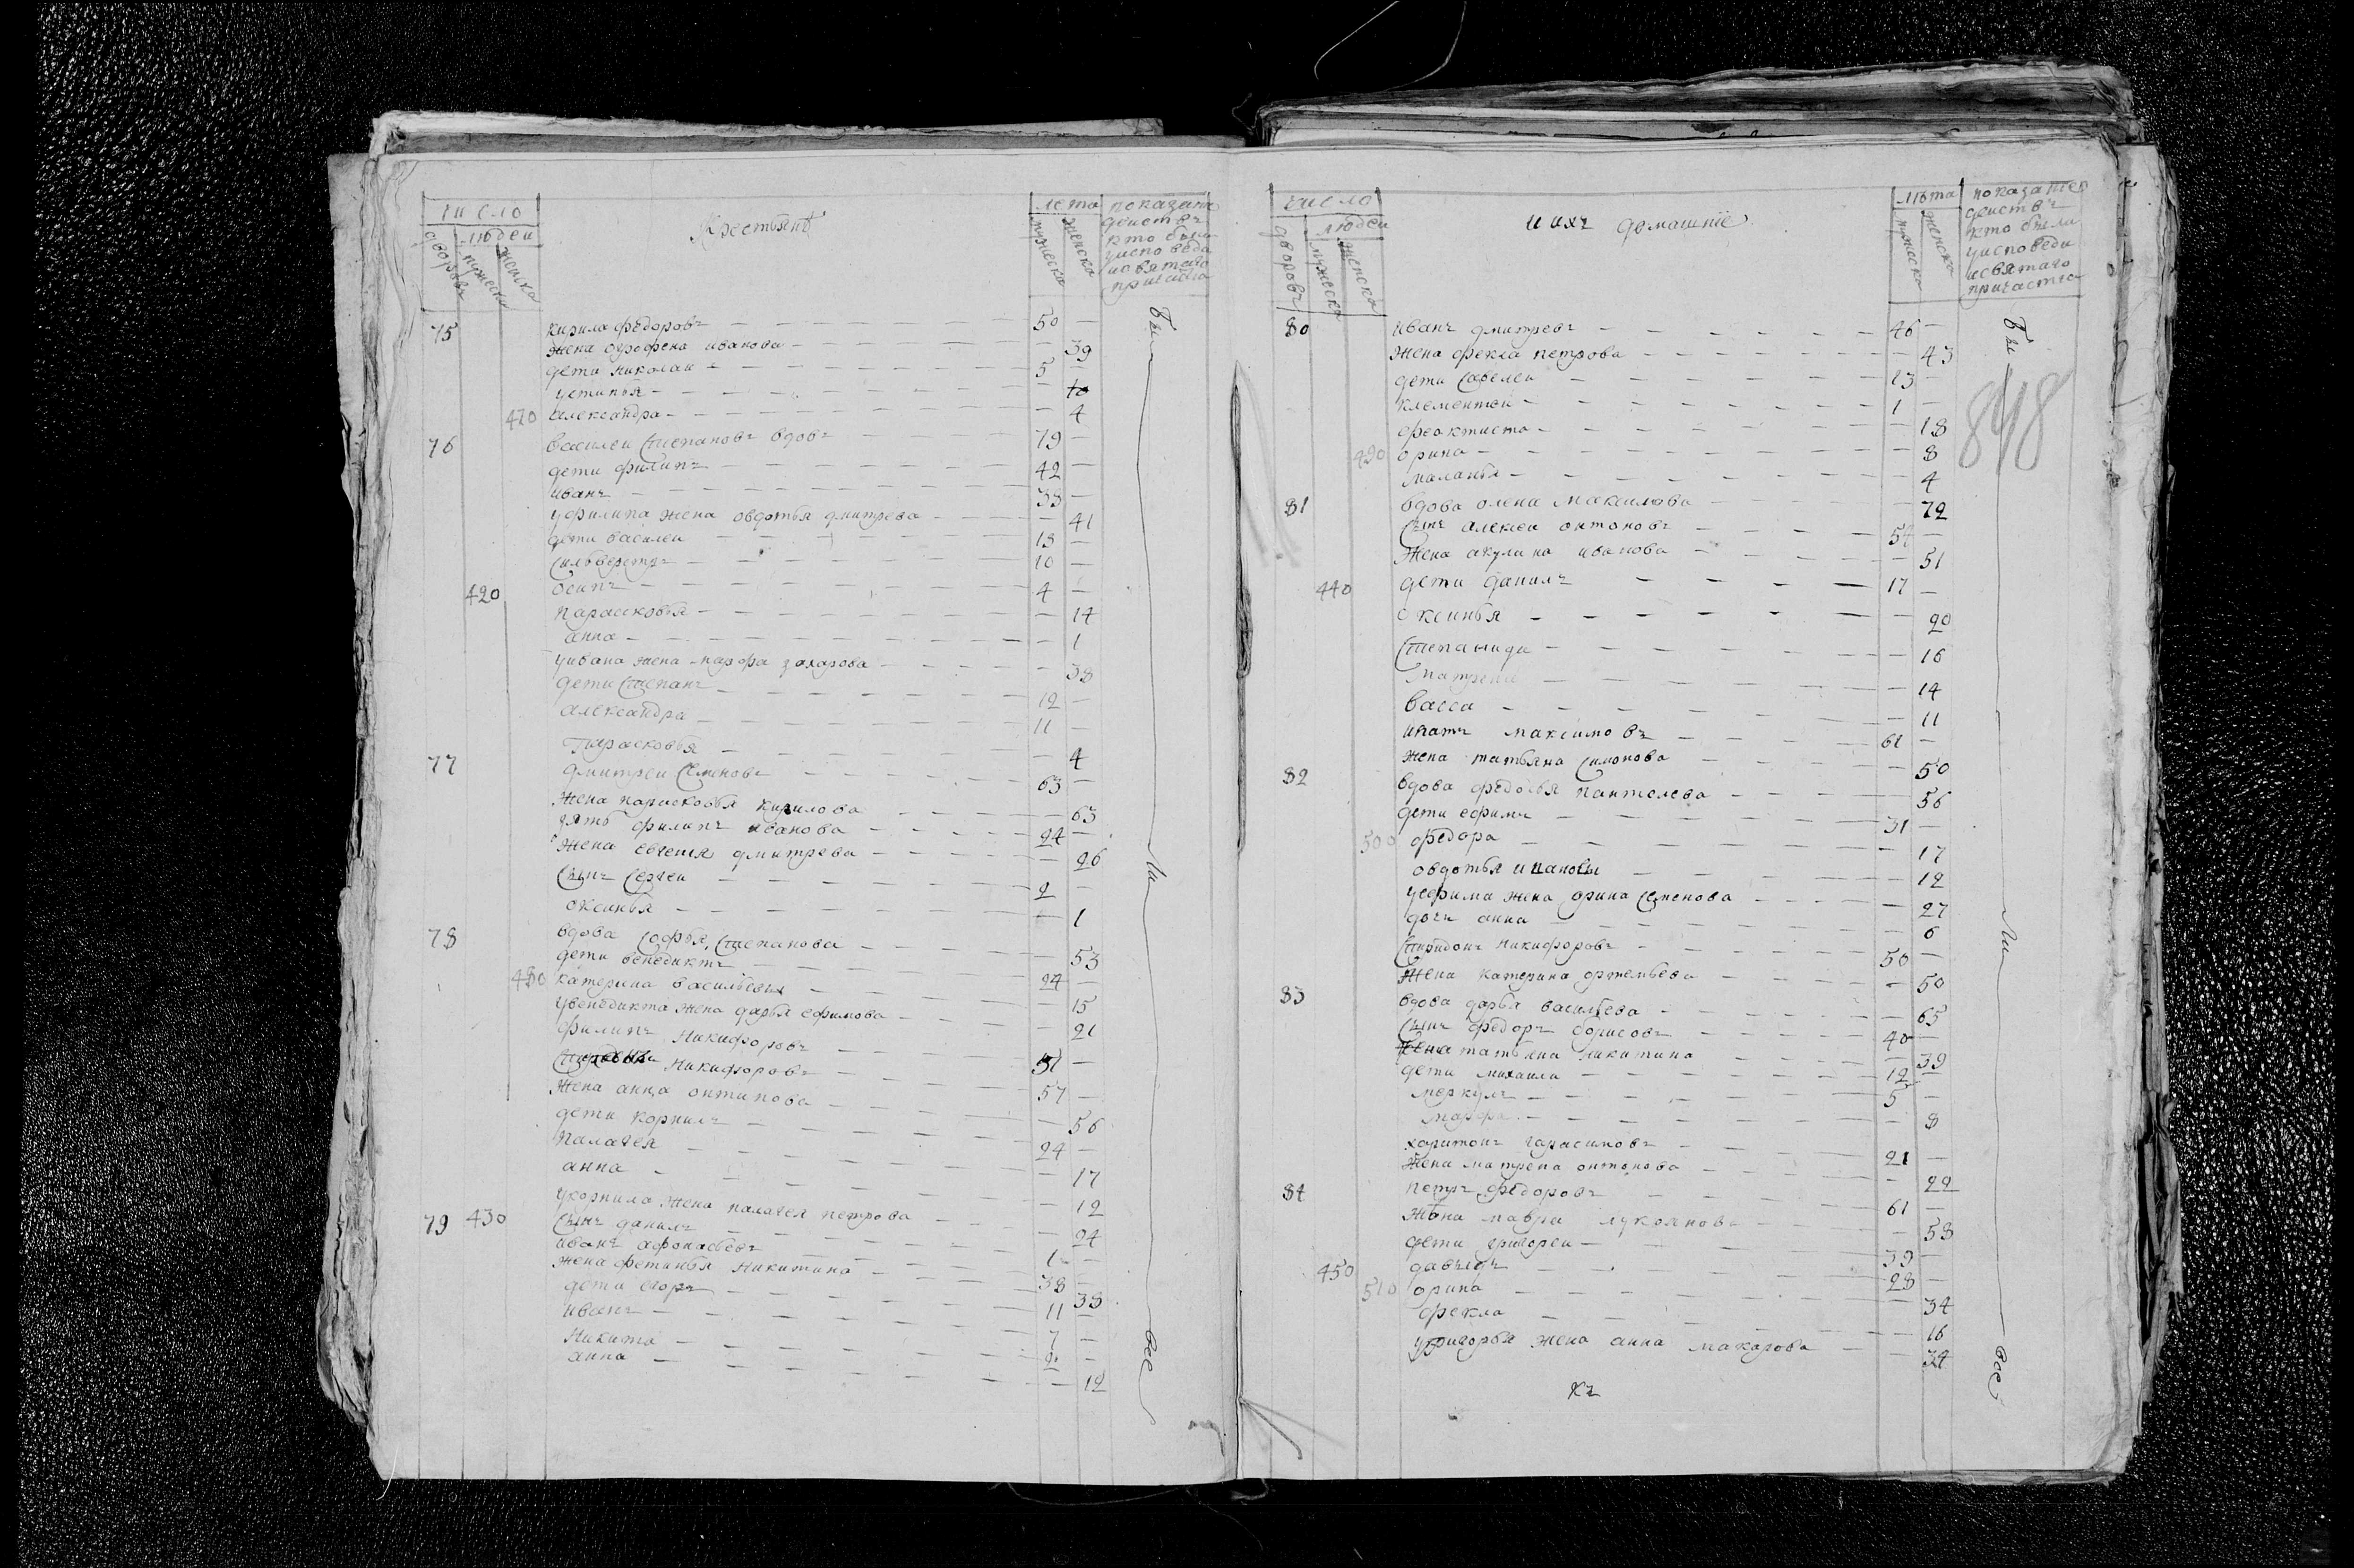 число
людеи
дворовъ
мужеска
женска
Крестьянѣ
лета
мужеска
женска
показание
деиствъ
кто были
уисповеди
исвятаго
причастия
75 кирила федоровъ 50
жена огрофена иванова 39
дети николаи 5
устинья 10
470 александра 4
76 василеи степановъ вдовъ 79
дети филипъ 42
иванъ 38
уфилипа жена овдотья дмитрева 41
дети василеи 18
силверстръ 10
420 осипъ 4
парасковья 14
анна 1
уивана жена марфа захарова 38
дети степанъ 12
александра 11
Парасковья 4
77 дмитреи семеновъ 63
жена парасковья кирилова 63
зять филипъ иванова 24
жена евгения дмитрева 26
сынъ сергеи 2
оксинья 1
78 вдова софья степанова 53
дети венедиктъ 24
480 катерина васильевы 15
увенедикта жена дарья ефимова 21
филипъ никифоровъ
никифоровъ 57
жена анна онтипова 56
дети корнилъ 24
палагея 17
анна 12
укорнила жена палагея петрова 24
430 сынъ данилъ 1
79 иванъ афонасьевъ 38
жена фетинья никитина 38
дети егоръ 11
иванъ 7
никита 2
анна 12
Бы ли все
число
людеи
дворовъ
мужеска
женска
и ихъ домашние
лѣта
мужеска
женска
показание
деиствъ
кто были
уисповеди
исвятаго
причастия
848
80 иванъ дмитревъ 46
жена фекла петрова 43
дети савелеи 13
клементеи 1
феоктиста 18
490 орина 8
маланья 4
81 вдова олена максимова 72
сынъ алексеи онтоновъ 54
жена акулина иванова 51
440 дети данилъ 17
оксинья 20
степанида 16
матрена 14
васса 11
ипатъ максимовъ 61
жена татьяна симонова 50
82 вдова федосья пантелева 56
дети ефимъ 31
500 федора 17
овдотья ипановы 12
уефима жена орина семенова 27
дочь анна 6
спиридонъ никифоровъ 50
жена катерина ортемьева 50
83 вдова дарья васильева 65
сынъ федоръ борисовъ 40
жена татьяна никитина 39
дети михаила 12
меркулъ 5
марфа 8
харитонъ гарасимовъ 21
жена матрена онтонова 22
84 петръ федоровъ 61
жена мавра лукоянова 58
дети григореи 39
450 давыдъ 28
510 орина 34
фекла 16
угригорья жена анна макарова 34
Бы ли все
къ